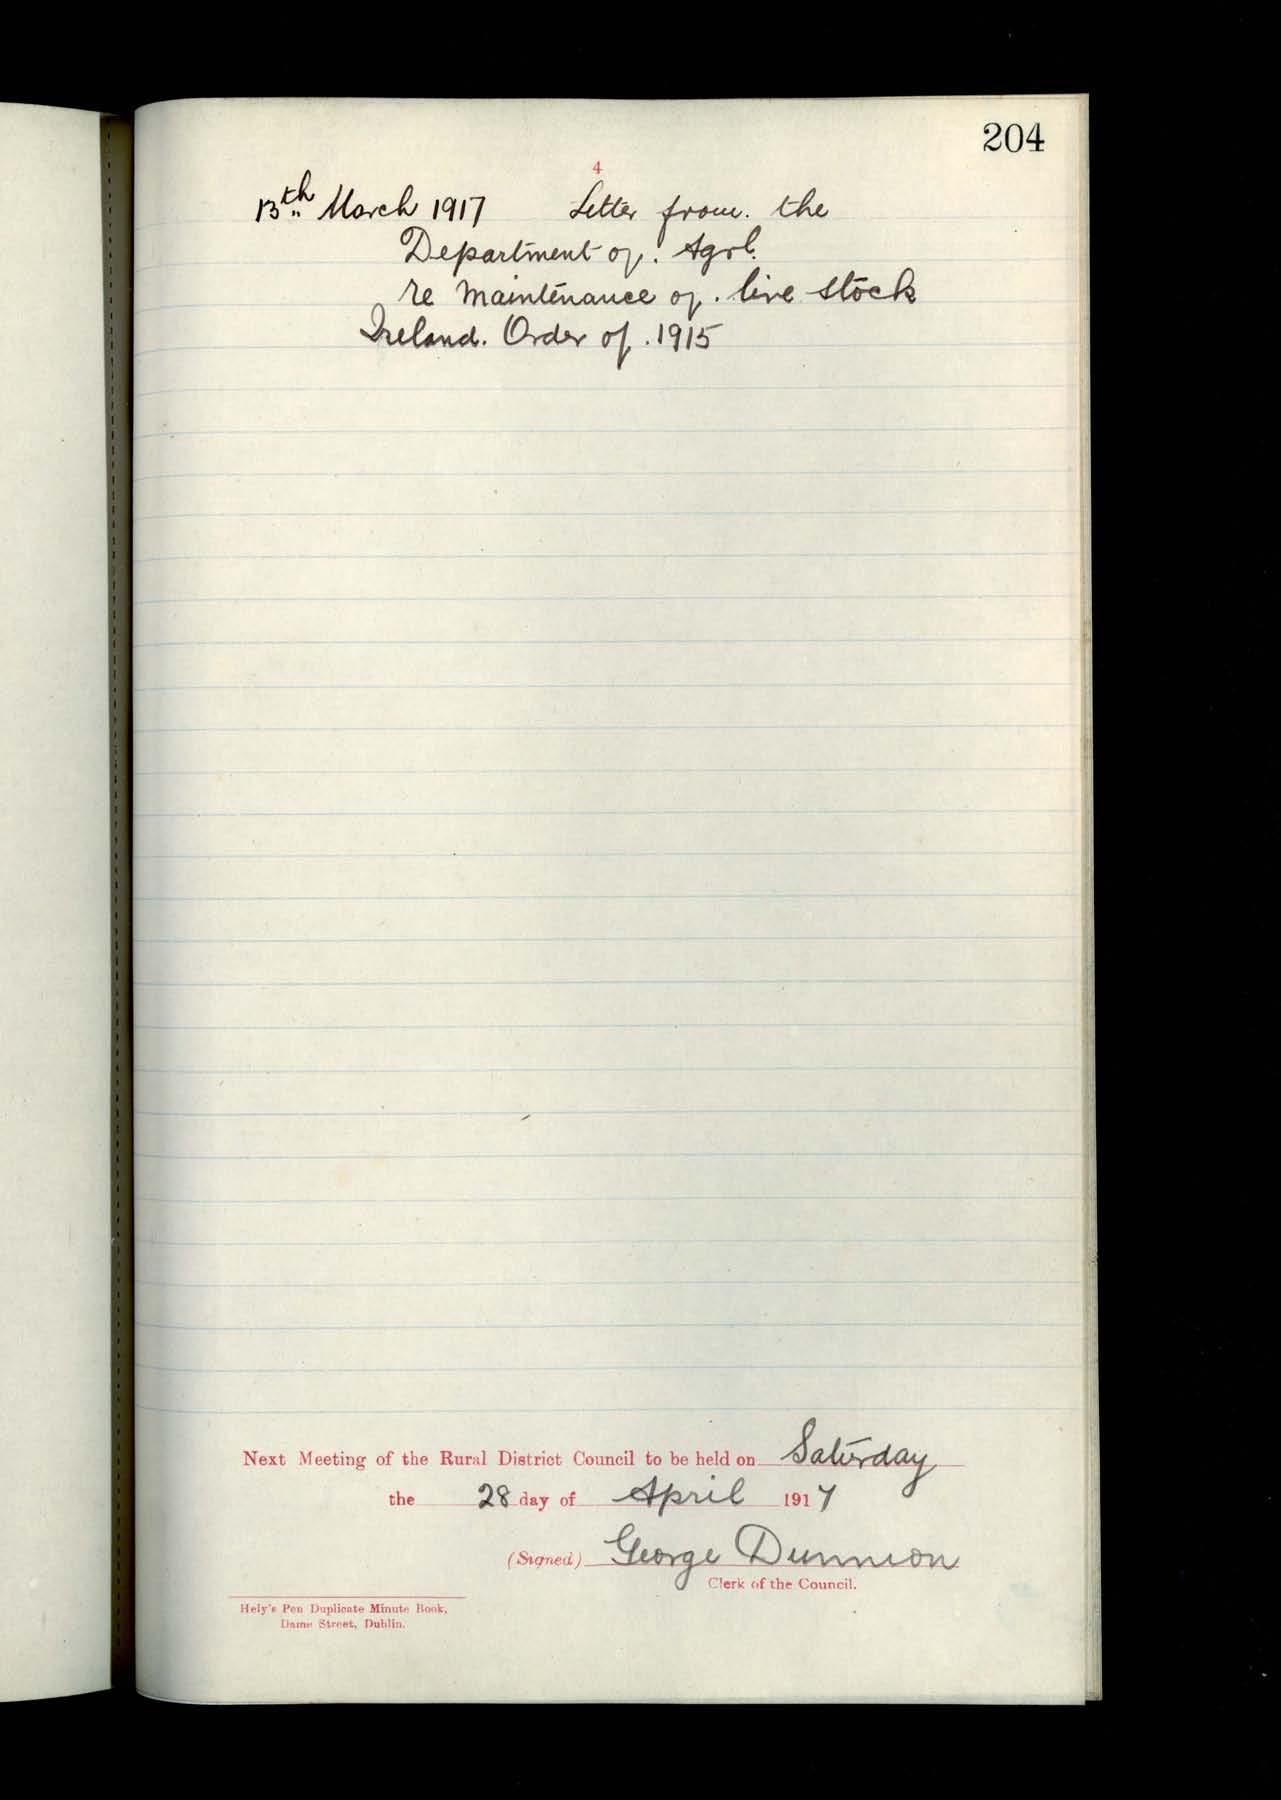 204
4
13th March 1917 Letter from. the
Department of. Agrl.
re Maintenance of. live stock
Ireland. Order of. 1915
Next Meeting of the Rural District Council to be held on Saturday
the 28 day of April 1917
(Signed) George Dunnion
Clerk of the Council.
Hely's Pen Duplicate Minute Book,
Dame Street, Dublin.